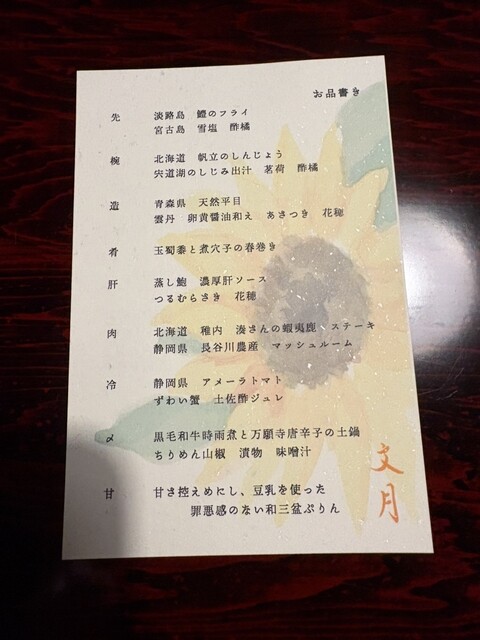 お品書き
先 淡路島 鱧のフライ
宮古島 雪塩 酢橘
椀 北海道 帆立のしんじょう
宍道湖のしじみ出汁 茗荷 酢橘
造 青森県 天然平目
雲丹 卵黄醤油和え あさつき 花穂
肴 玉蜀黍と煮穴子の春巻き
肝 蒸し鮑 濃厚肝ソース
つるむらさき 花穂
肉 北海道 稚内 湊さんの蝦夷鹿 ステーキ
静岡県 長谷川農産 マッシュルーム
冷 静岡県 アメーラトマト
ずわい蟹 土佐酢ジュレ
〆 黒毛和牛時雨煮と万願寺唐辛子の土鍋
ちりめん山椒 漬物 味噌汁
甘 甘さ控えめにし、豆乳を使った
罪悪感のない和三盆ぷりん
文月